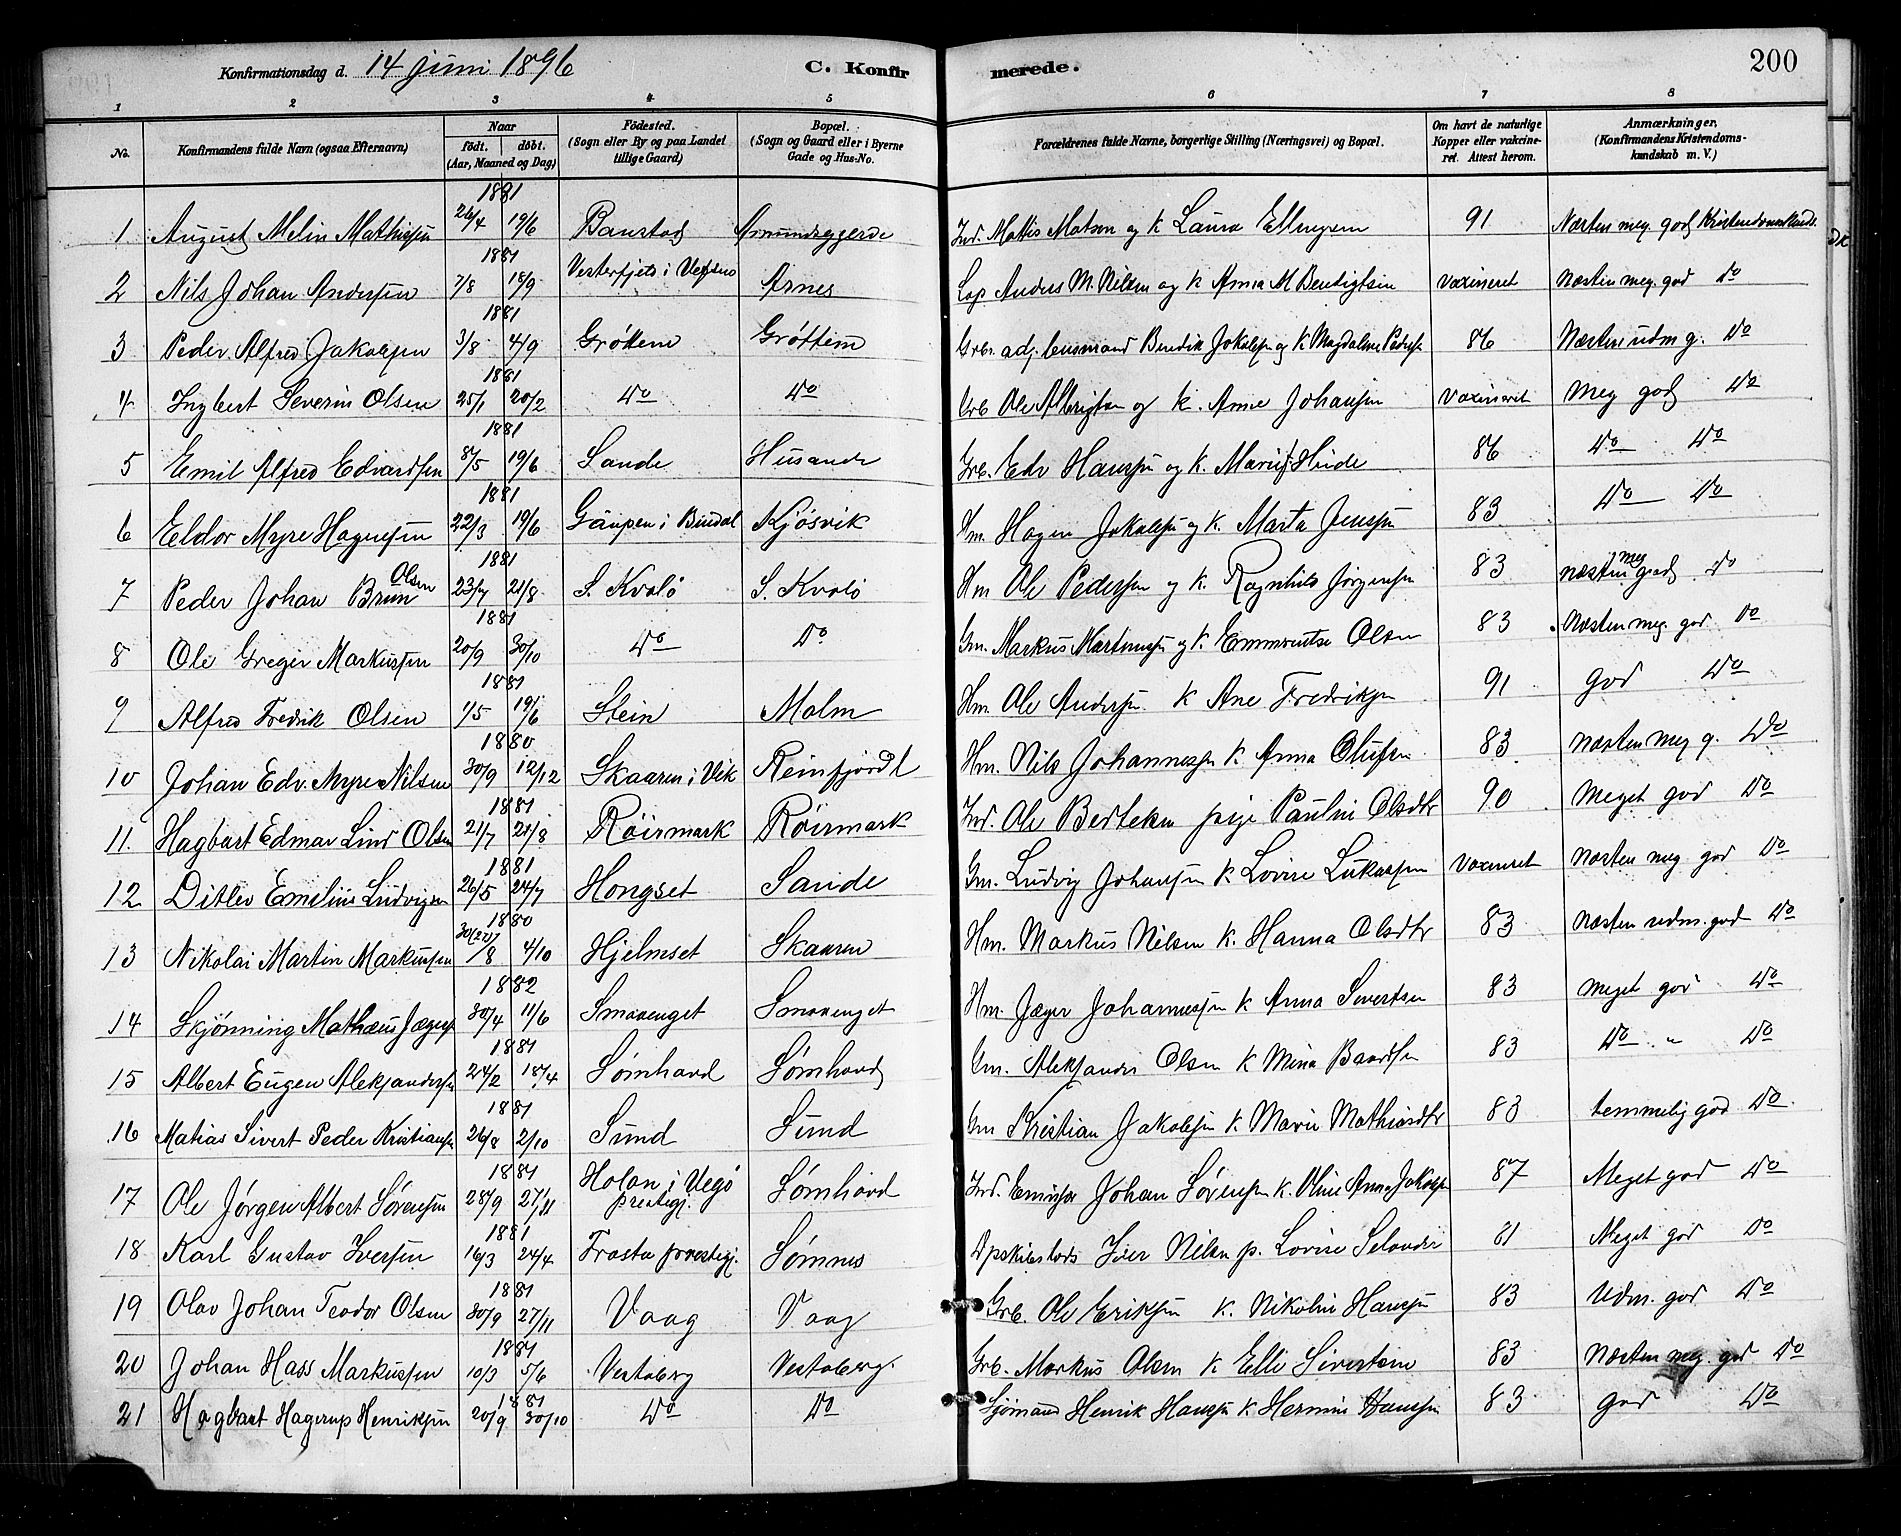 Konfirmationsdag d. 14 juni 1896 C. Konfirmerede. 200
1 2 3 4 5 6 7 8
No. Konfirmandens fulde Navn (ogsaa Efternavn) Naar födt. döbt. (Aar, Maaned og Dag) Födested. (Sogn eller By og paa Landet tillige Gaard) Bopæl. (Sogn og Gaard eller i Byerne Gade og Hus-No. Forældrenes fulde Navne, borgerlige Stilling (Næringsvei) og Bopæl. Om havt de naturlige Kopper eller vakcineret. Attest herom. Anmærkninger, (Konfirmandens Kristendomskundskab m. V.)
1881
1 August Melin Mathisen 26/4 19/6 Baustad Ind. Mattis Matsen og K Laura Ellingsen 91 Næsten meg. god Kristendomskunds.
1881
2 Nils Johan Andersen 7/8 18/9 Vesterfjeld i Vefsns Arnes Lap Anders M. Nilsen og K Anna M Bendigtsen vaxineret Næsten meg. god Do
1881
3 Peder Alfred Jakobsen 3/8 4/9 Gröttem Gröttem Grbr. adj. husmand Bendik Jakobsen og K Magdalene Peders 86 Næsten udm g. Do
1881
4 Ingbert Severin Olsen 25/1 20/2 Do Do Grb Ole Albrigtsen og K. Anne Johansen Vaxineret Meg god Do
1881
5 Emil Alfred Edvardsen 8/5 19/6 Sande Husande Grb. Edv Hansen og K. Marie Hilde 86 Do Do
1881
6 Eldor Myre Hagensen 22/3 19/6 Gaupen i Bindal Kjösvik Hm. Hagen Jakobsen og K. Marta Jensen 83 Do Do
1881
7 Peder Johan Brun Olsen 23/7 21/8 S. Kvalö S. Kvalö Hm Ole Pedersen og K. Ragnhild Jörgensen 83 næsten meg god Do
1881
8 Ole Greger Markussen 20/9 30/10 Do Do Gm. Markus Martinussen og K. Emmerentse Olsen 83 Næsten meg. god Do
1881
9 Alfred Fredrik Olsen 1/5 19/6 Stein Malm Hm. Ole Andersen K Ane Fredriksen 91 god Do
1880
10 Johan Edv. Myre Nilsen 30/9 12/12 Skaaren i Vik Reinfjordt Hm. Nils Johannessen K Anna Olufsen 83 Næsten meg g. Do
1881
11. Hagbart Edmar Lind Olsen 21/7 21/8 Röirmark Röirmark Ind. Ole Berteksen pige Pauline Olsdtr 90 Meget god Do
1881
12 Ditlev Emilius Ludvigsen 26/5 24/7 Hongset Sande Gm. Ludvig Johansen K Lovise Lukassen Vaxineret Næsten meg god Do
1880
13 Nikolai Martin Markussen 30(22)/8 4/10 Hjelmset Skaaren Hm. Markus Nilsen K. Hanna Olsdtr 83 Næsten udm. god Do
1882
14 Skjönning Mathæus Jægers 30/4 11/6 Smavenget Smavenget Hm. Jæger Johannessen K Anna Sivertsen 83 Meget god Do
1881
15 Albert Eugen Aleksandersen 24/2 18/4 Sömhovd Sömhovd Gm. Aleksander Olsen K Mina Baardsen 83 Do " Do
1881
16 Matias Sivert Peder Kristiansen 26/8 2/10 Sund Sund Gm Kristian Jakobsen K Marie Mathiasdtr 83 temmelig god Do
1881
17 Ole Jörgen Albert Sörensen 28/9 27/11 Holan i Vegö prestegj. Sömhovd Ind. Johan Sörensen K. Oline Anna Jakobs 87 Meget god Do
1881
18 Karl Gustav Iversen 16/3 24/4 Frosta prestegj. Sömnes Iver Nilsen p. Lovise Selander 81 Meget god Do
1881
19 Olav Johan Teodor Olsen 30/9 27/11 Vaag Vaag Grb. Ole Eriksen K. Nikoline Hansen 83 Udm. god Do
1881
20 Johan Hass Markussen 10/3 5/6 Vestaberg Vestaberg. Grb. Markus Olsen K Elli Sivertsen 83 Næsten meg. god Do
1881
21 Hagbart Hagerup Henriksen 20/9 30/10 Do Do Sjömand Henrik Hansen K Hermine Hansen 83 god Do